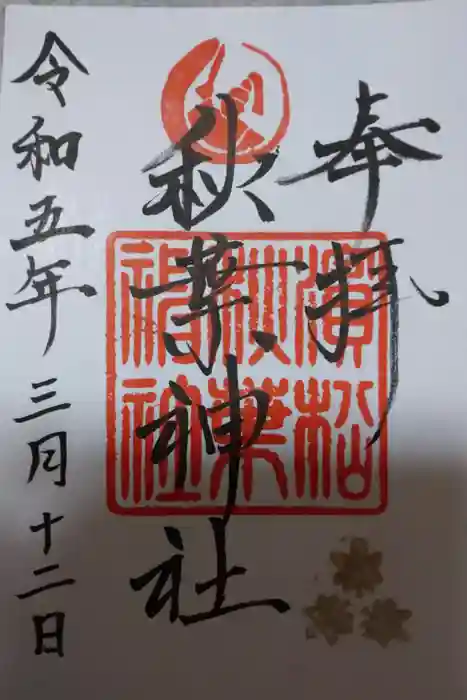 奉拝
濱松
秋葉
神社
秋葉神社
令和五年三月十二日